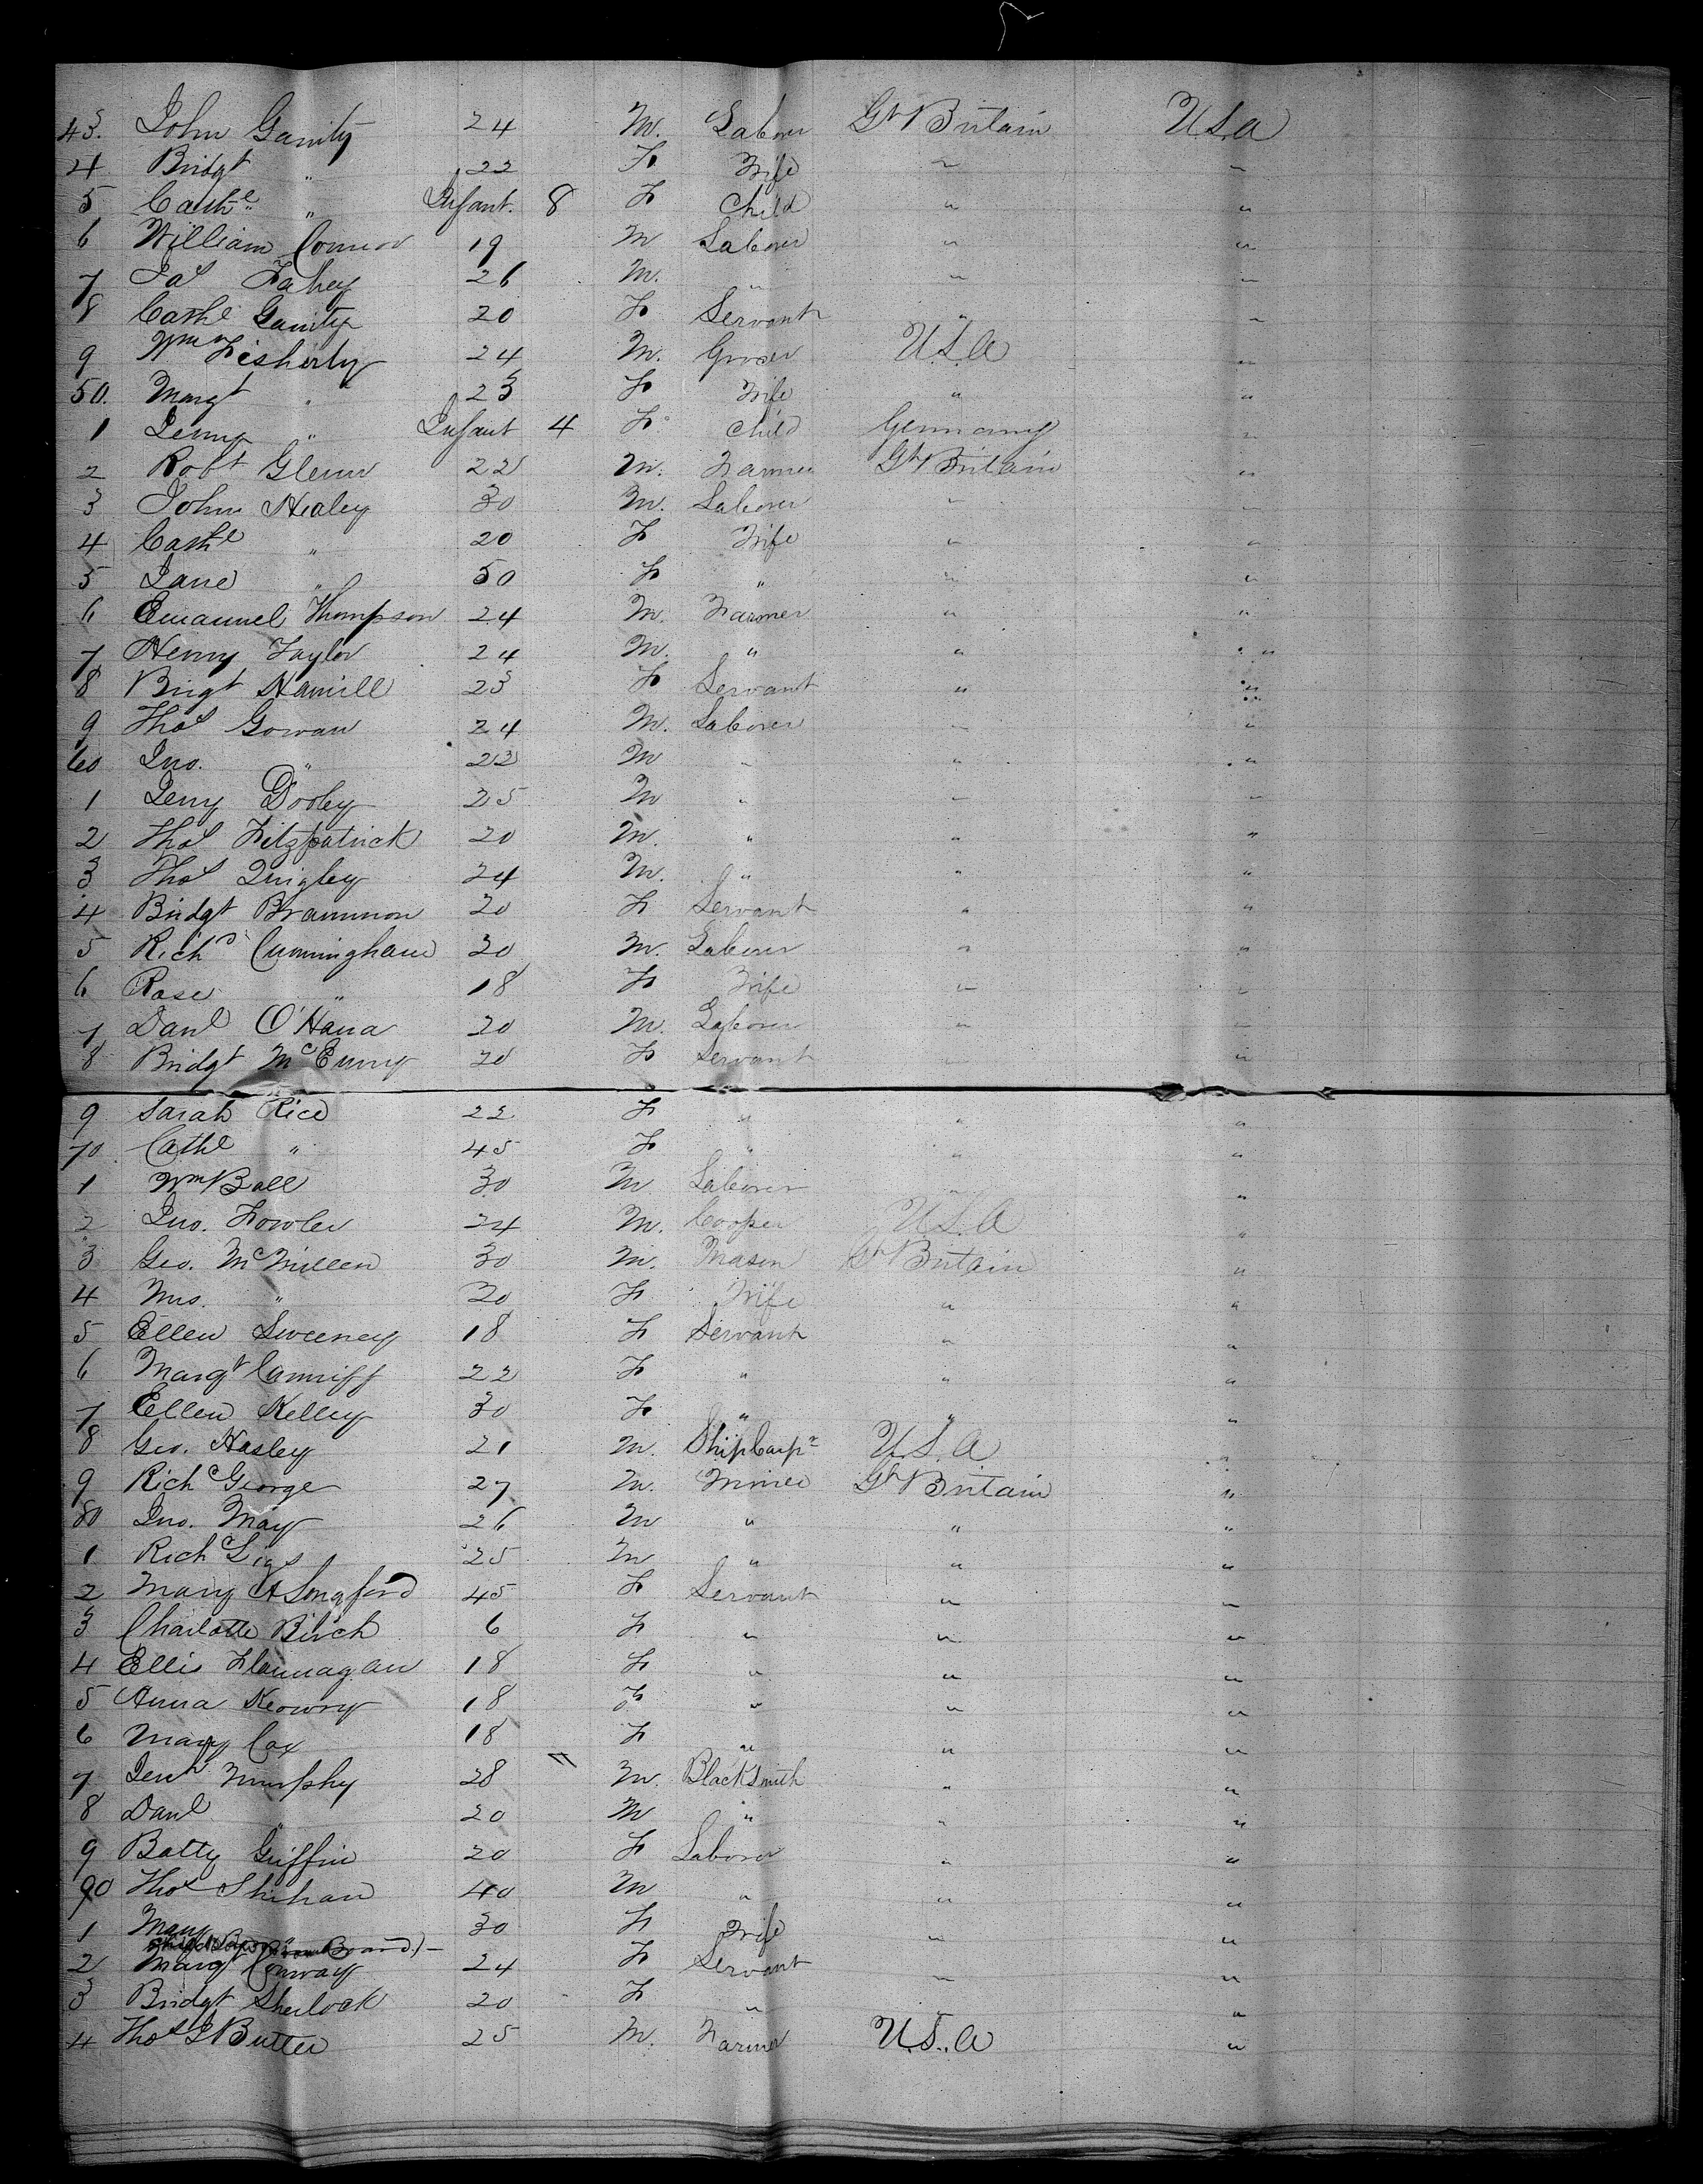 43. John Garrity 24 M. Laborer Gt Britain U.S.A
4 Bridgt " 22 F Wife " "
5 Cathe " Infant. 8 F Child " "
6 William Connor 19 M Laborer " "
7 Pat Fahey 26 M. " " "
8 Cathe Garrity 20 F Servant " "
9 Wm Fisherty 24 M. Grocer U.S.A "
50. Margt " 23 F Wife " "
1 Jenny " Infant 4 F Child Germany "
2 Robt Glenn 22 M. Farmer Gt Britain "
3 John Healey 30 M. Laborer " "
4 Cathe " 20 F Wife " "
5 Jane " 50 F " " "
6 Emanuel Thompson 24 M. Farmer " "
7 Henry Taylor 24 M. " " "
8 Brigt Hamill 23 F Servant " "
9 Thos Gowan 24 M. Laborer " "
60 Jno. " 22 M " " "
1 Jerry Dooley 25 M " " "
2 Thos Fitzpatrick 20 M. " " "
3 Thos Quigley 24 M. " " "
4 Bridgt Brammon 20 F Servant " "
5 Richd Cunningham 30 M. Laborer " "
6 Rose " 18 F Wife " "
7 Danl O'Hara 20 M. Laborer " "
8 Bridgt McEnny 20 F Servant " "
9 Sarah Rice 22 F " " "
70 Cathe " 45 F " " "
1 Wm Ball 30 M Laborer " "
2 Jno. Fowler 24 M. Cooper U.S.A "
3 Geo. McMillen 30 M. Mason Gt Britain "
4 Mrs. " 20 F Wife " "
5 Ellen Sweeney 18 F Servant " "
6 Margt Canniff 22 F " " "
7 Ellen Kelley 30 F " " "
8 Geo. Hasley 21 M. Ship Carpr U.S.A "
9 Richd George 27 M. Miner Gt Britain "
80 Jno. May 26 M " " "
1 Richd 25 M " " "
2 Mary A Longford 45 F Servant " "
3 Charlotte Birch 6 F " " "
4 Ellis Flannagan 18 F " " "
5 Anna Keowry 18 F " " "
6 Mary Cox 18 F " " "
7 Murphy 28 " M. Blacksmith " "
8 Danl " 20 M " " "
9 Batty Griffin 20 F Laborer " "
90 Thos Shehan 40 M " " "
1 Mary " 30 F Wife " "
Board)-
2 Margt Conway 24 F Servant " "
3 Bridgt Sherlock 20 F " " "
4 Thos J Butler 25 M. Farmer U.S.A "